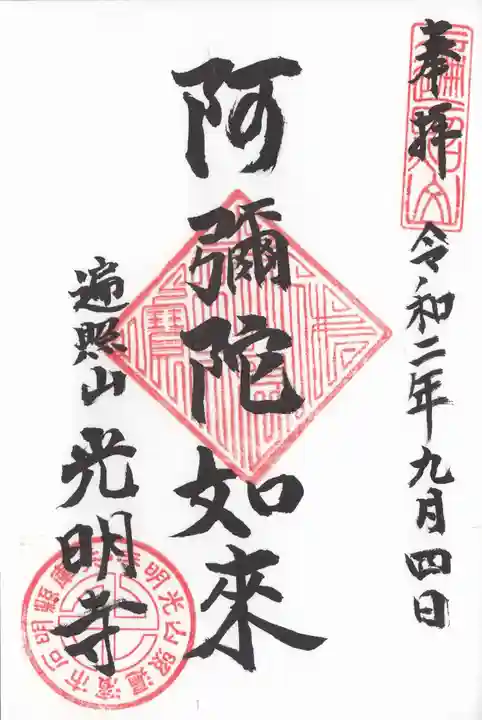 奉拝
令和二年九月四日
阿彌陀如來
遍照山
光明寺